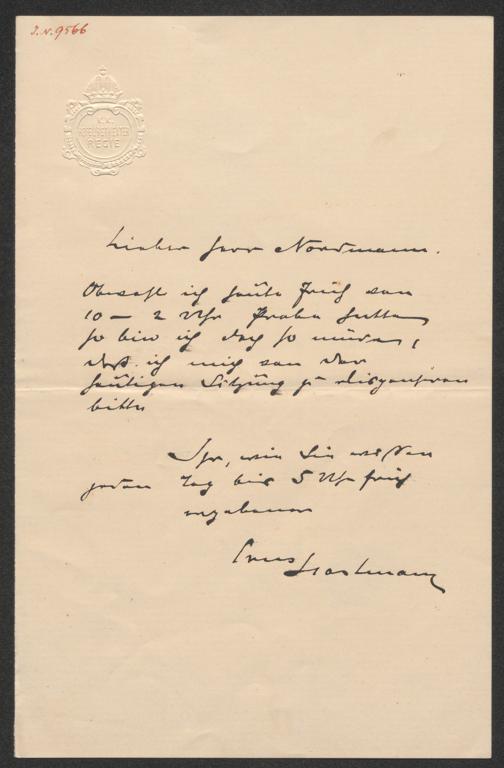 J.N. 9566
K.K.
HOFBURGTHEATER
REGIE
Lieber Herr Nordmann.
Obwohl ich heute Früh von
10 – 2 Uhr Probe hatte,
so bin ich doch so müde,
daß ich mich von der
heutigen Sitzung zu dispensiren
bitte
Ihr, wie Sie wissen
jeden Tag bis 5 Uhr früh
ergebener
Ernst Hartmann